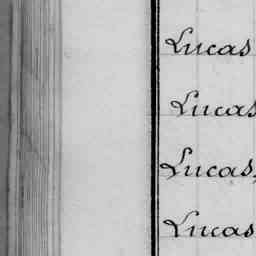 Lucas
Lucas
Lucas,
Lucas